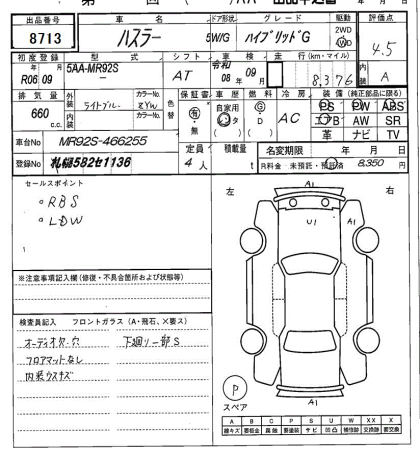 出品番号 車名 ドア形状 グレード 駆動 評価点
8713 ハスラー 5W/G ハイブリッドG 2WD 4WD 4.5
初度登録 型式 シフト 車検 走行(km・マイル) 内装
R06 年 09 月 5AA-MR92S AT 令和 08 年 09 月 8,376 A
排気量 外装 カラーNo. 色替 保証書 車歴 燃料 冷房 装備(純正部品に限る)
660 c.c. ライトブルー ZYW 有・無 自家用 G D AC PS PW ABS
内装 カラーNo. AW SR
革 ナビ TV
車台No MR92S-466255 定員 積載量 名変期限 年 月 日
登録No 札幌582セ1136 4人 t R料金 未預託・預託済 8,350 円
セールスポイント
○RBS
○LDW
左 右
A1
U1 A1
A1
※注意事項記入欄(修復・不具合箇所および状態等)
検査員記入 フロントガラス(A・飛石、X要ス)
オーディオ欠、穴 下廻リ一部S
フロアマットなし
内装ウスキズ
P
スペア
A B C P S U W XX X
線キズ 要板金 腐蝕 要塗装 サビ 凹凸 補修跡 交換跡 要交換